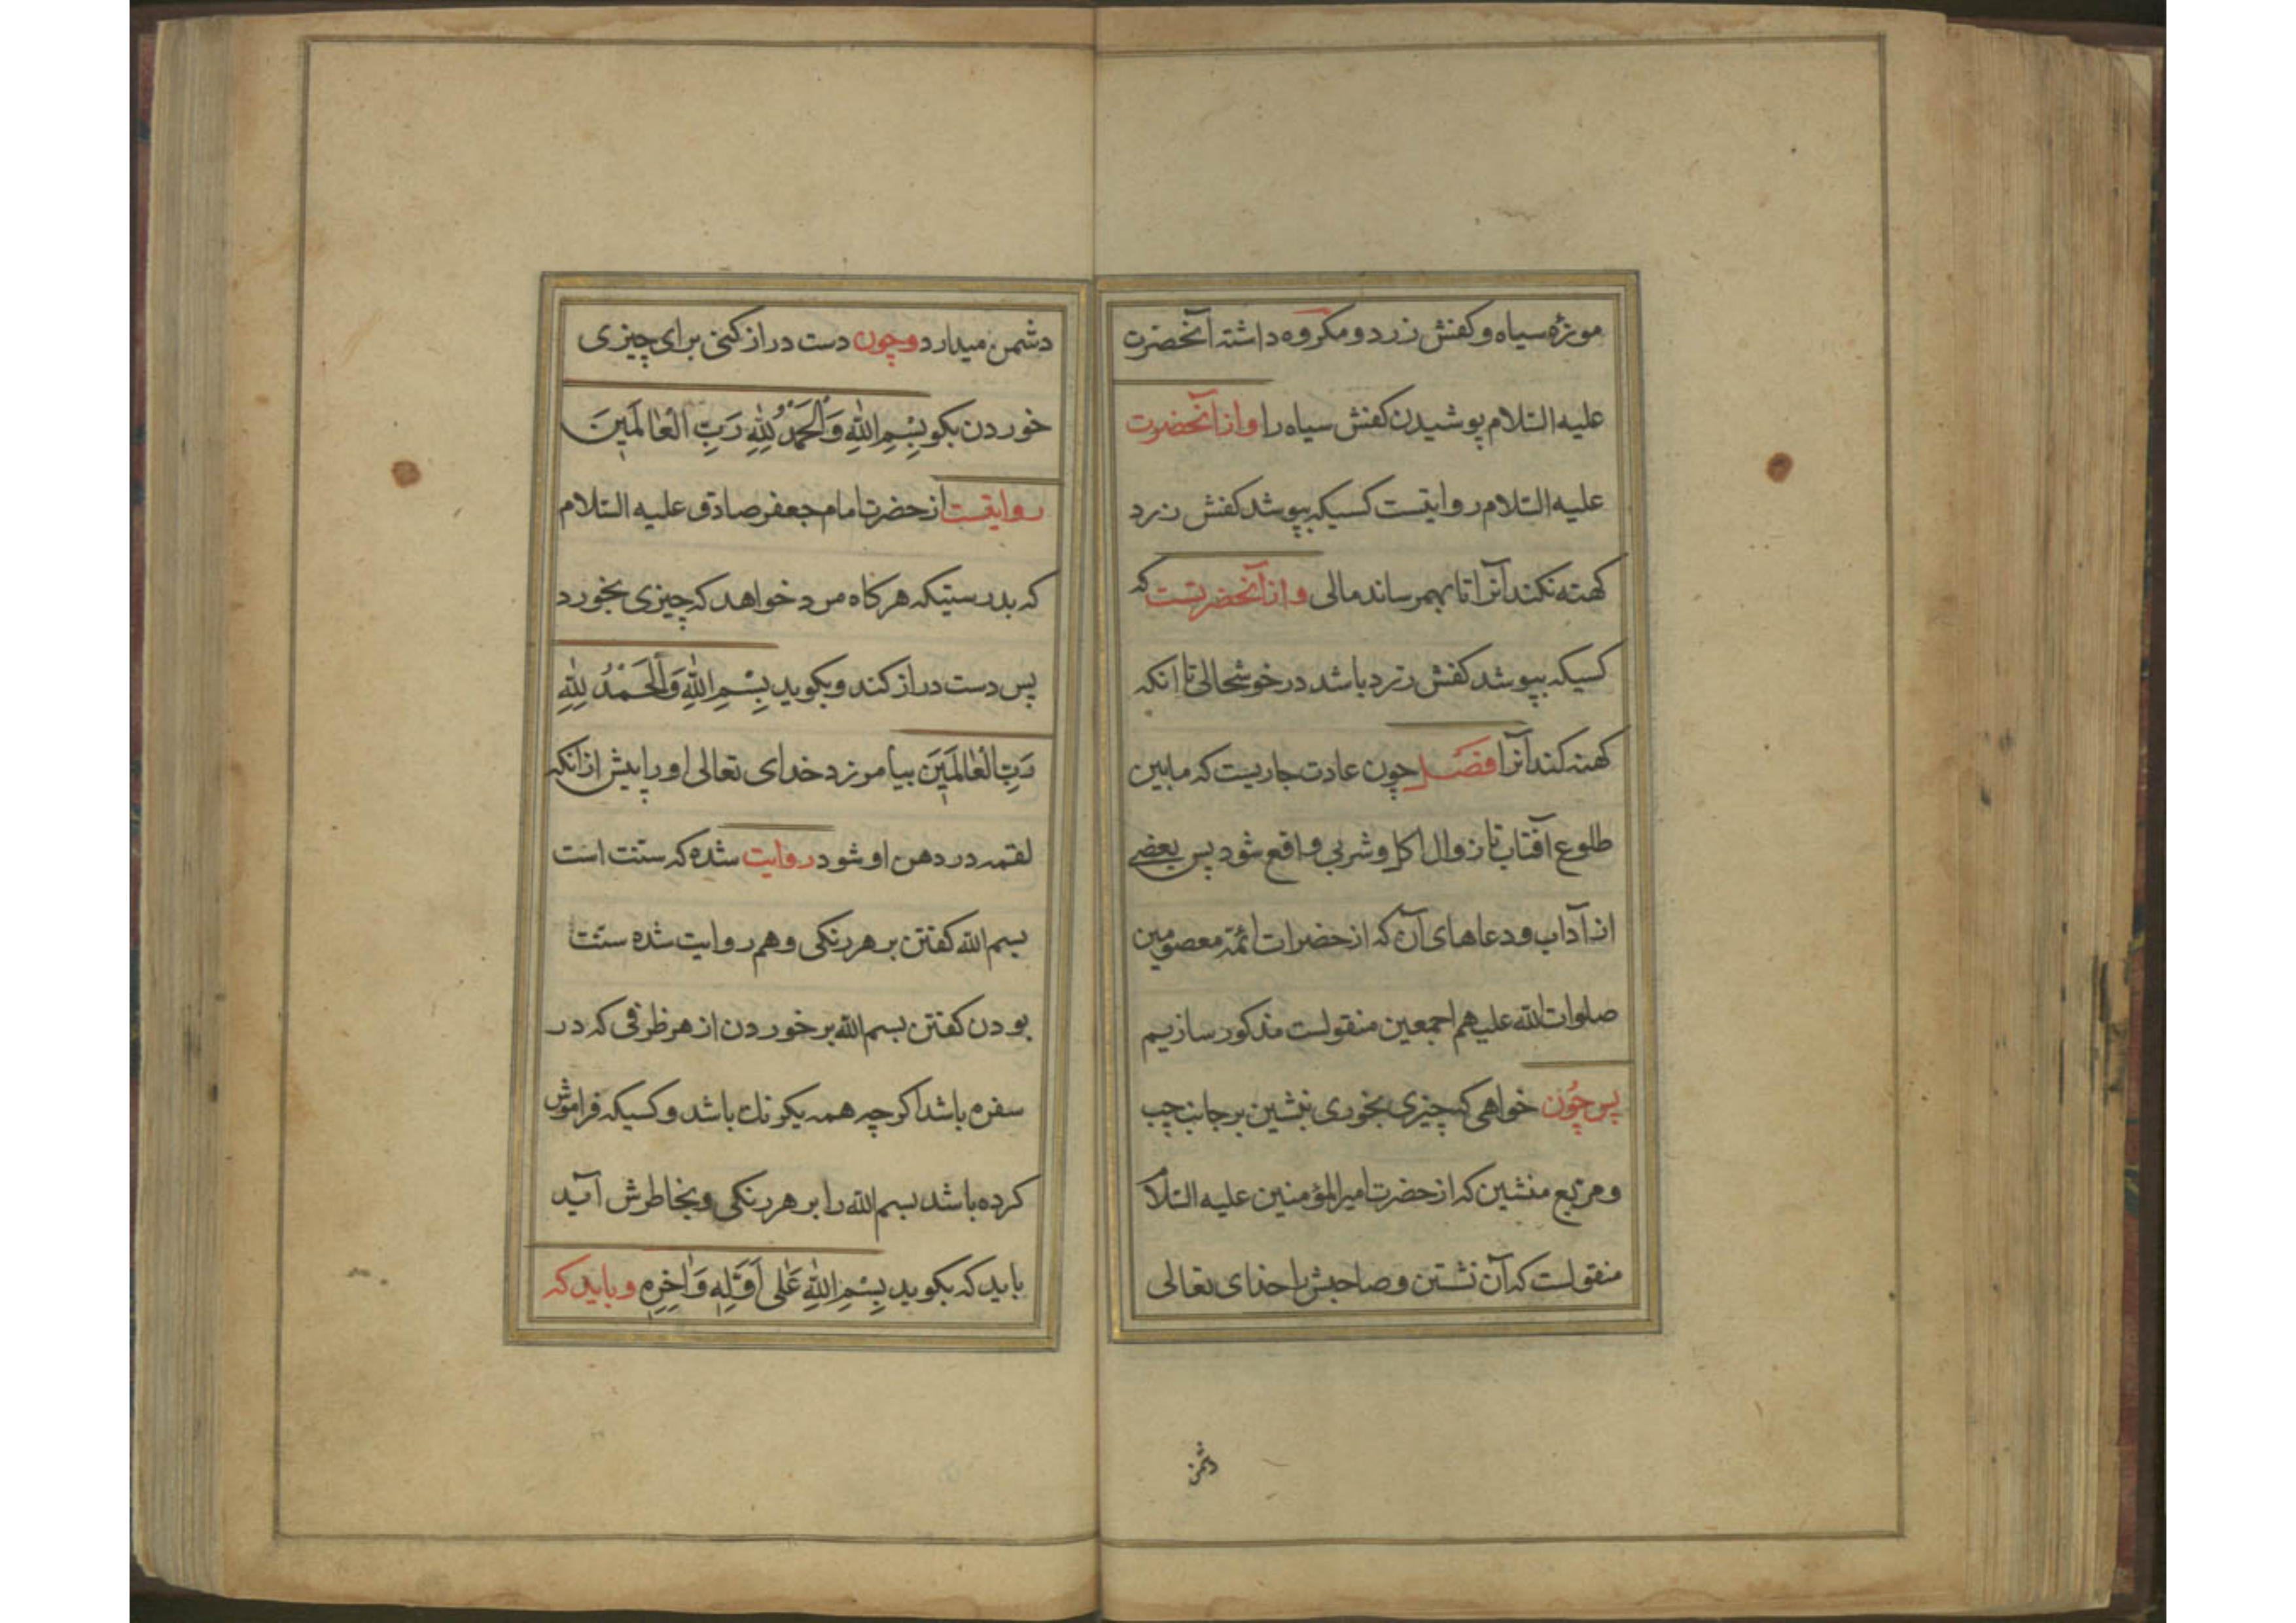 موزۀ سیاه و کفش زرد و مکروه داشته آنحضرت
علیه السّلام پوشیدن کفش سیاه را و از آنحضرت
علیه السّلام روایتست کسیکه بپوشد کفش زرد
کهنه نکند آنرا تا بهمرساند مالی و از آنحضرتست که
کسیکه بپوشد کفش زرد باشد در خوشحالی تا انکه
کهنه کند آنرا فصل چون عادت جاریست که مابین
طلوع آفتاب تا زوال اکل و شربی واقع شود پس بعضی
از آداب و دعاهای آن که از حضرات ائمّۀ معصومین
صلوات الله علیهم اجمعین منقولست مذکور سازیم
پس چُون خواهی که چیزی بخوری بنشین بر جانب چپ
و مربّع منشین که از حضرت امیرالمؤمنین علیه السّلام
منقولست که آن نشستن و صاحبش را خدای تعالی
دشمن
دشمن میدارد و چون دست دراز کنی برای چیزی
خوردن بکو بِسْمِ اللّٰهِ وَالْحَمْدُ لِلّٰهِ رَبِّ الْعٰالَمٖینَ
روایتست از حضرت امام جعفر صادق علیه السّلام
که بدرستیکه هرکاه مرد خواهد که چیزی بخورد
پس دست دراز کند و بکوید بِسْمِ اللّٰهِ وَالْحَمْدُ لِلّٰهِ
رَبِّ الْعٰالَمٖینَ بیامورزد خدای تعالی او را پیش از آنکه
لقمه در دهن او شود روایت شده که سنّت است
بسم الله کفتن بر هر رنکی و هم روایت شده سنّت
بودن کفتن بسم الله بر خوردن از هر ظرفی که در
سفره باشد اکرچه همه یکونك باشد و کسیکه فراموش
کرده باشد بسم الله را بر هر رنکی و بخاطرش آید
باید که بکوید بِسْمِ اللّٰهِ عَلٰی اَوَّلِهٖ وَاٰخِرِهٖ و باید که